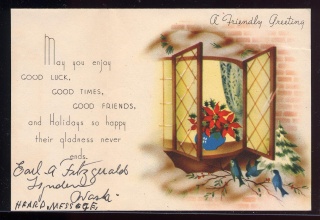 A Friendly Greeting
May you enjoy
GOOD LUCK,
GOOD TIMES,
GOOD FRIENDS,
and Holidays so happy
their gladness never
ends.
Earl A Fitzgerald
Lynden
Wash.
HEARD MESSAGE